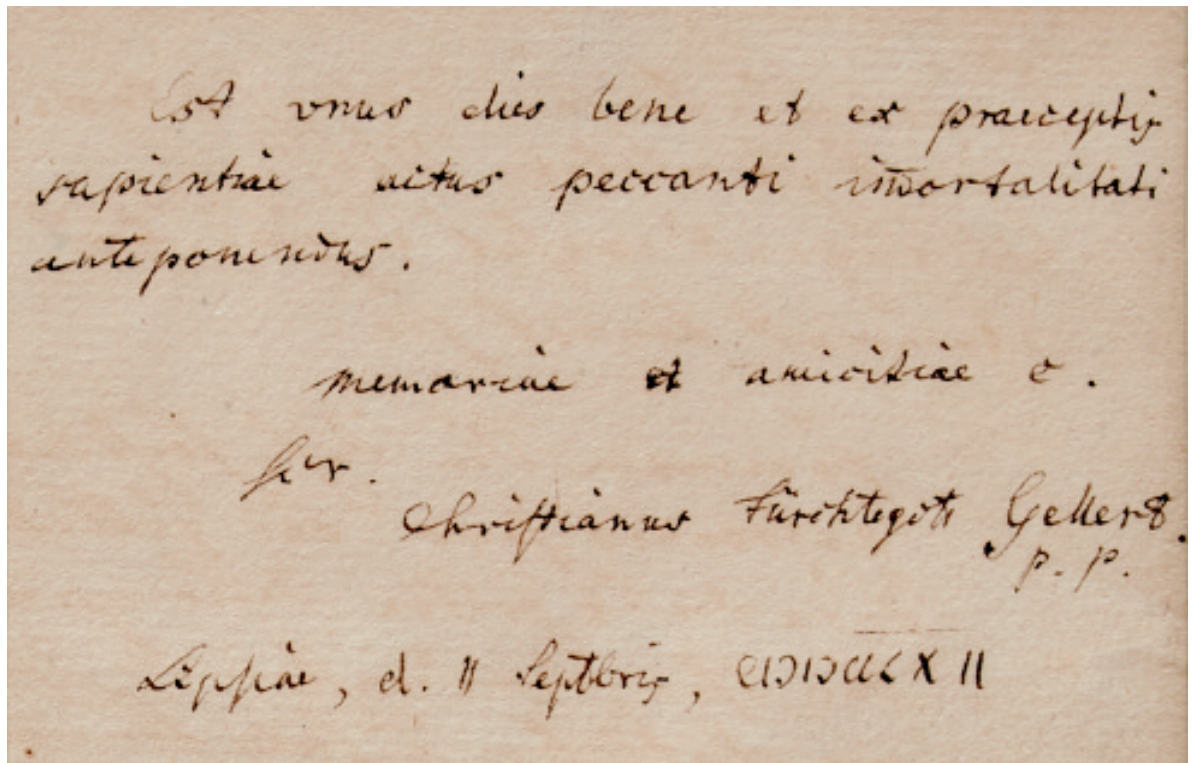 Est vnus dies bene et ex praeceptis
sapientiae actus peccanti im̄ortalitati
anteponendus.
memoriae et amicitiae c.
scr.
Christianus Fürchtegott Gellert.
p. p.
Lipsiae, d. 11 Septbris, CIƆIƆCCLXII